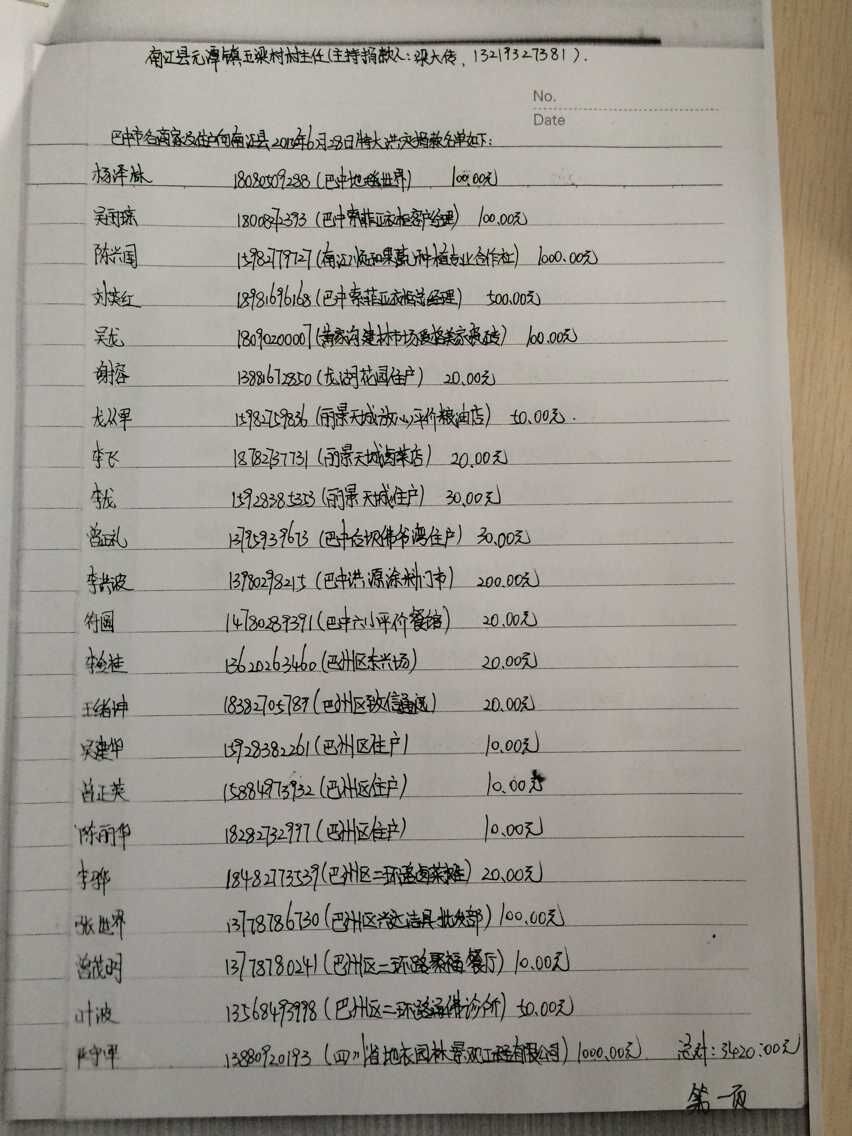 南江县元潭镇五梁村村主任(主持捐款人:梁大传,13219327381).
No.
Date
巴中市各商家及住户向南江县2013年6月28日特大洪灾捐款名单如下:
杨泽林 18080509288(巴中地毯世界) 100.00元
吴雨琼 1800872393(巴中索菲亚衣柜客户经理) 100.00元
陈兴国 15982779727(南江 果蔬种植专业合作社) 1000.00元
刘英红 18981696168(巴中索菲亚衣柜总经理) 500.00元
吴龙 18090200007(黄家沟建材市场 美家 砖) 100.00元
谢容 13881672850(龙湖花园住户) 20.00元
龙从军 15982759836(丽景天城放心平价粮油店) 50.00元.
李飞 18782737731(丽景天城卤菜店) 20.00元
李龙 15928385353(丽景天城住户) 30.00元
曾正礼 13795939673(巴中后坝佛爷湾住户) 30.00元
李洪波 13980298215(巴中洪源涂料门市) 200.00元
符圆 14780289391(巴中六小平价餐馆) 20.00元
李 桂 13620263460(巴州区东兴场) 20.00元
王绪坤 18382705789(巴州区致信通讯) 20.00元
吴建华 15928382261(巴州区住户) 10.00元
曾正英 15884973932(巴州区住户) 10.00元
陈丽华 18282732997(巴州区住户) 10.00元
李骅 18482773539(巴州区二环路卤菜摊) 20.00元
张世界 13778786730(巴州区兴达洁具批发部) 100.00元
曾茂明 13778780241(巴州区二环路聚福餐厅) 10.00元
叶波 13568493998(巴州区二环路 诊所) 50.00元
严守军 13880920193(四川省地衣园林景观工程有限公司) 1000.00元 总计:3420.00元
第一页